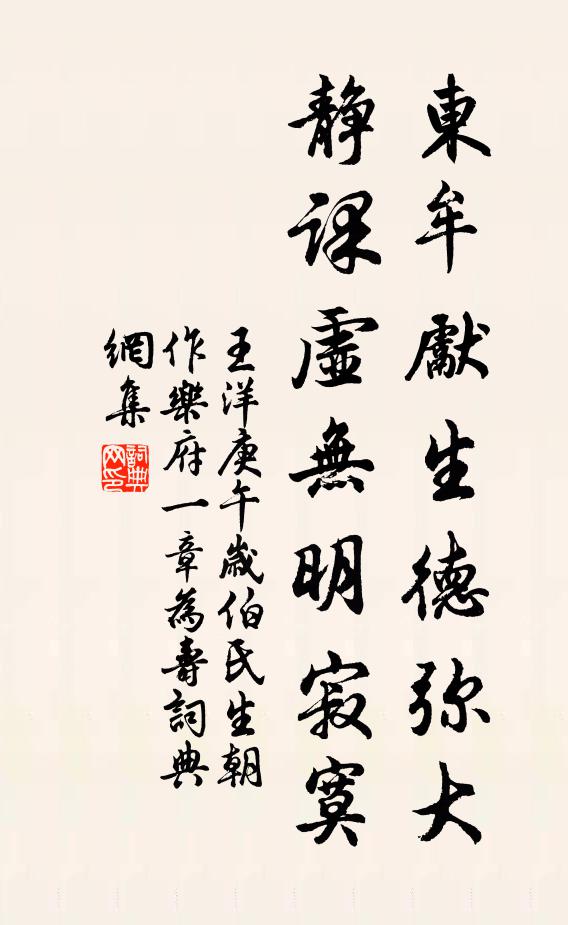 東牟獻生德弥大
靜課虛無明寂寞
王洋庚午歲伯氏生朝
作樂府一章為壽詞典
網集
詞典
网印